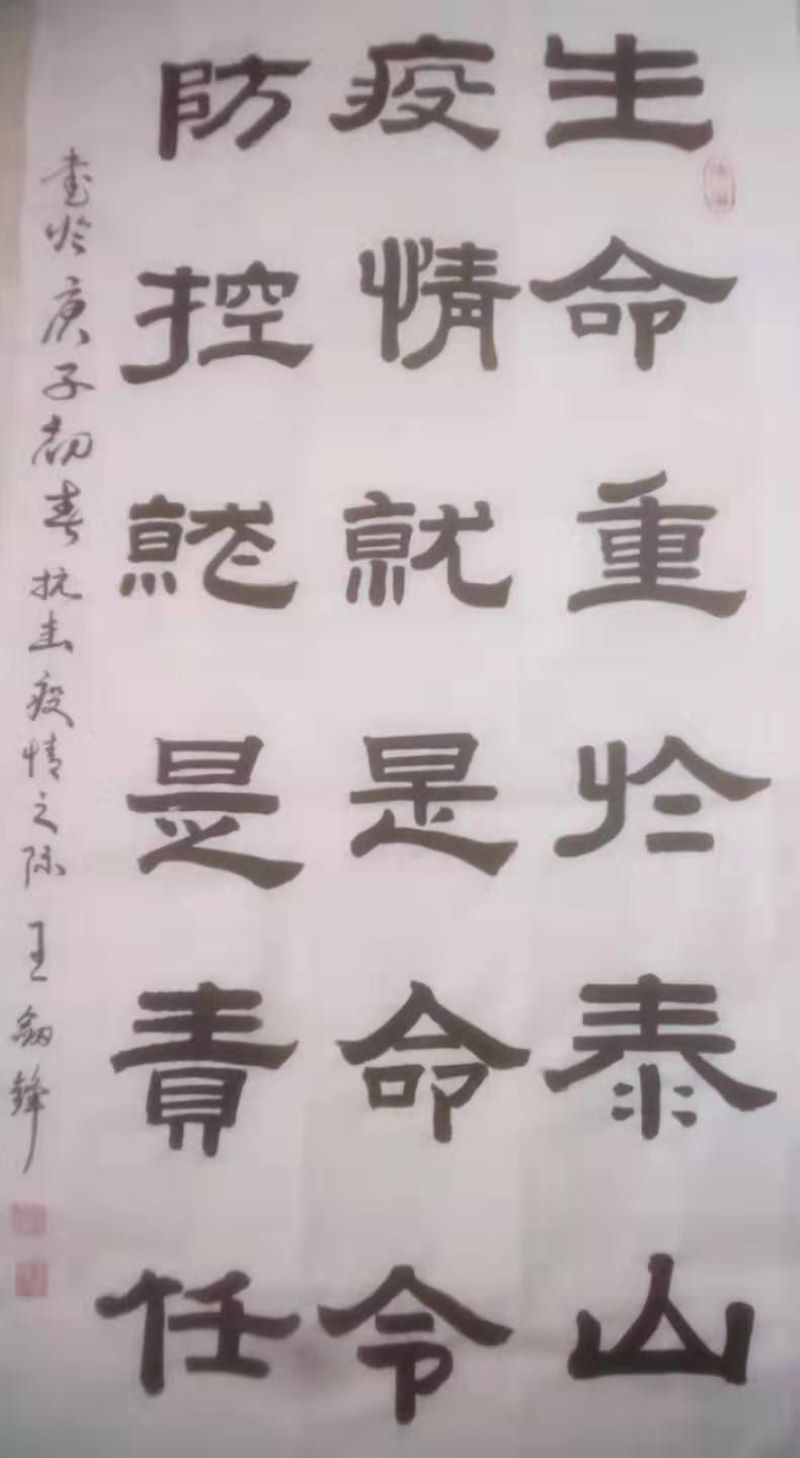 生命重於泰山
疫情就是命令
防控就是責任
書於庚子初春抗击疫情之际王剑鋒